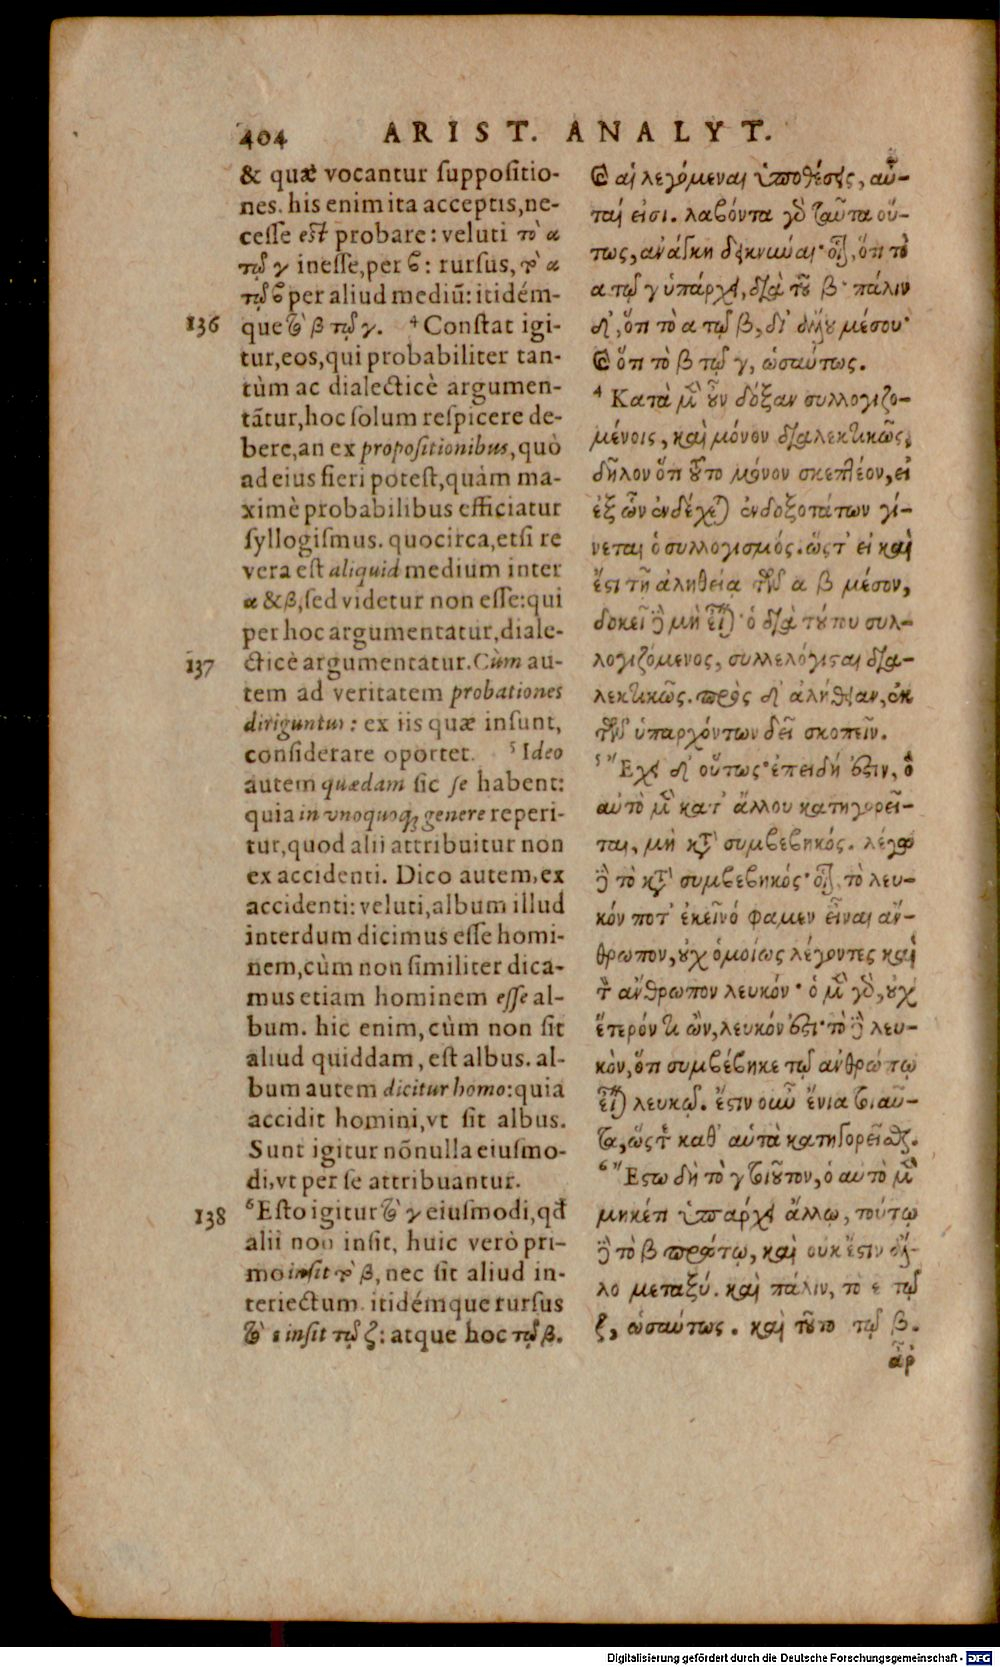 404 ARIST. ANALYT.
& quæ vocantur ſuppoſitio-
nes. his enim ita acceptis, ne-
ceſſe eſt probare: veluti τὸ α
τῷ γ ineſſe, per ϐ: rurſus, τὸ α
τῷ ϐ per aliud mediũ: itidém-
136 que τὸ β τῷ γ. ⁴ Conſtat igi-
tur, eos, qui probabiliter tan-
tùm ac dialecticè argumen-
tãtur, hoc ſolum reſpicere de-
bere, an ex propoſitionibus, quò
ad eius fieri poteſt, quàm ma-
ximè probabilibus efficiatur
ſyllogiſmus. quocirca, etſi re
vera eſt aliquid medium inter
α & β, ſed videtur non eſſe: qui
per hoc argumentatur, diale-
137 cticè argumentatur. Cùm au-
tem ad veritatem probationes
diriguntur: ex iis quæ inſunt,
conſiderare oportet. ⁵ Ideo
autem quædam ſic ſe habent:
quia in vnoquoq; genere reperi-
tur, quod alii attribuitur non
ex accidenti. Dico autem, ex
accidenti: veluti, album illud
interdum dicimus eſſe homi-
nem, cùm non ſimiliter dica-
mus etiam hominem eſſe al-
bum. hic enim, cùm non ſit
aliud quiddam, eſt albus. al-
bum autem dicitur homo: quia
accidit homini, vt ſit albus.
Sunt igitur nõnulla eiuſmo-
di, vt per ſe attribuantur.
138 ⁶ Eſto igitur τὸ γ eiuſmodi, qđ
alii non inſit, huic verò pri-
mo inſit τὸ β, nec ſit aliud in-
teriectum. itidémque rurſus
τὸ ε inſit τῷ ζ: atque hoc τῷ β.
καὶ αἱ λεγόμεναι ὑποθέσεις, αὗ-
ταί εἰσι. λαβόντα γὸ ταῦτα οὕ-
τως, ανάγκη δεικνύναι· οἷον, ὅτι τὸ
α τῷ γ ὑπάρχει, διὰ τοῦ β· πάλιν
δ', ὅτι τὸ α τῷ β, δι' ἄλλου μέσου·
καὶ ὅτι τὸ β τῷ γ, ὡσαύτως.
⁴ Κατὰ μὲν οὖν δόξαν συλλογιζο-
μένοις, καὶ μόνον διαλεκτικῶς,
δῆλον ὅτι τοῦτο μόνον σκεπτέον, εἰ
ἐξ ὧν ἐνδέχεται ἐνδοξοτάτων γί-
νεται ὁ συλλογισμός. ὥςτ' εἰ καὶ
ἔςι τῇ ἀληθείᾳ τῶν α β μέσον,
δοκεῖ δὲ μὴ εἶναι· ὁ διὰ τούτου συλ-
λογιζόμενος, συλλελόγιςαι δια-
λεκτικῶς. πρὸς δ' ἀλήθειαν, ἐκ
τῶν ὑπαρχόντων δεῖ σκοπεῖν.
⁵ Ἔχει δ' οὕτως· ἐπειδή ἐςιν, ὃ
αὐτὸ μὲν κατ' ἄλλου κατηγορεῖ-
ται, μὴ κατὰ συμβεβηκός. λέγω
δὲ τὸ κατὰ συμβεβηκός· οἷον, τὸ λευ-
κόν ποτ' ἐκεῖνό φαμεν εἶναι ἄν-
θρωπον, οὐχ ὁμοίως λέγοντες καὶ
τὸν ἄνθρωπον λευκόν· ὁ μὲν γὸ, οὐχ
ἕτερόν τι ὢν, λευκόν ἐςι· τὸ δὲ λευ-
κὸν, ὅτι συμβέβηκε τῷ ἀνθρώπῳ
εἶναι λευκῷ. ἔςιν οὖν ἔνια τοιαῦ-
τα, ὥςτε καθ' αὑτὰ κατηγορεῖσθαι.
⁶ Ἔςω δὴ τὸ γ τοιοῦτον, ὃ αὐτὸ μὲν
μηκέτι ὑπάρχει ἄλλῳ, τούτῳ
δὲ τὸ β πρώτῳ, καὶ ουκ ἔςιν ἄλ-
λο μεταξύ. καὶ πάλιν, τὸ ε τῷ
ζ, ὡσαύτως. καὶ τοῦτο τῷ β.
ἆρ
Digitalisierung gefördert durch die Deutsche Forschungsgemeinschaft - DFG